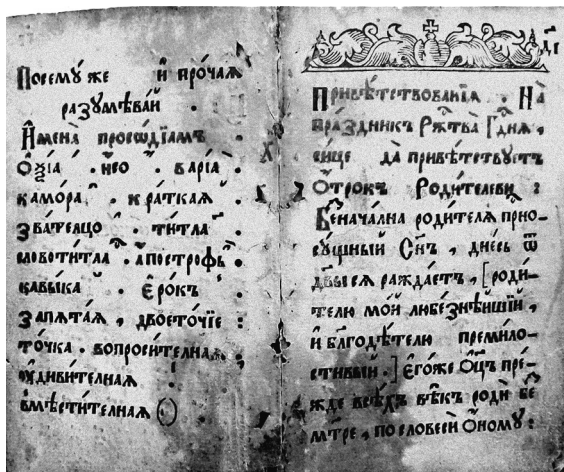 Посему́ же и҆ про́чаѧ
разꙋмѣва́й .
И҆мена̀ просѡді́амъ .
О҆ѯі́а . исо . варі́а .
камо́ра . кра́ткаѧ .
зва́телцо . ти́тла .
словоти́тла . а҆постро́фъ .
кавы́ка . є҆ро́къ :
запѧта́ѧ , двоето́чїе :
то́чка . вопроси́телнаѧ ,
ᲂу҆диви́телнаѧ
вмѣсти́телнаѧ ()
де
Привѣ́тствованїѧ . На̀
пра́здникъ Рж҃тва̀ Гдⷭ҇нѧ ,
си́це да̀ привѣ́тствꙋетъ
О҆́трокъ Роди́телеви :
Безнача́лна роди́телѧ прⷭ҇но-
сꙋ́щный Сн҃ъ , дне́сь ѿ
дв҃ы сѧ ражда́етъ , [роди́-
телю мо́й любе́знѣйшїй ,
и҆ бл҃годѣ́телю преми́ло-
стивый .] Е҆го́же Ѻ҆ц҃ъ пре́-
жде всѣ́хъ вѣ̑къ родѝ без̾
мт҃ре , по словесѝ О҆́номꙋ :